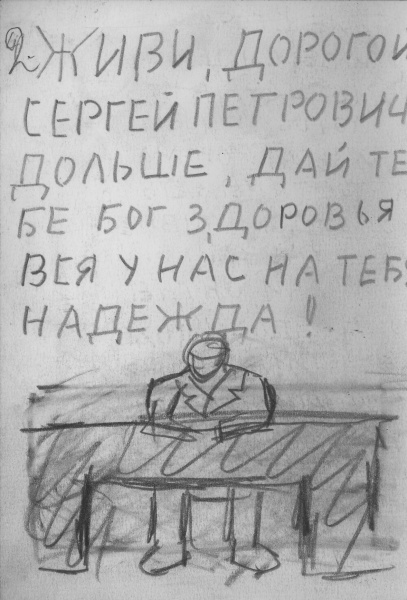 2. ЖИВИ, ДОРОГОЙ
СЕРГЕЙ ПЕТРОВИЧ
ДОЛЬШЕ, ДАЙ ТЕ
БЕ БОГ ЗДОРОВЬЯ
ВСЯ У НАС НА ТЕБЯ
НАДЕЖДА!